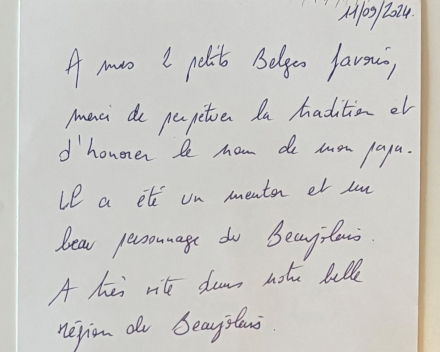 11/09/2024.
A mes 2 petits Belges favoris,
merci de perpétuer la tradition et
d'honorer le nom de mon papa.
Il a été un mentor et un
beau personnage du Beaujolais.
A très vite dans notre belle
région du Beaujolais.